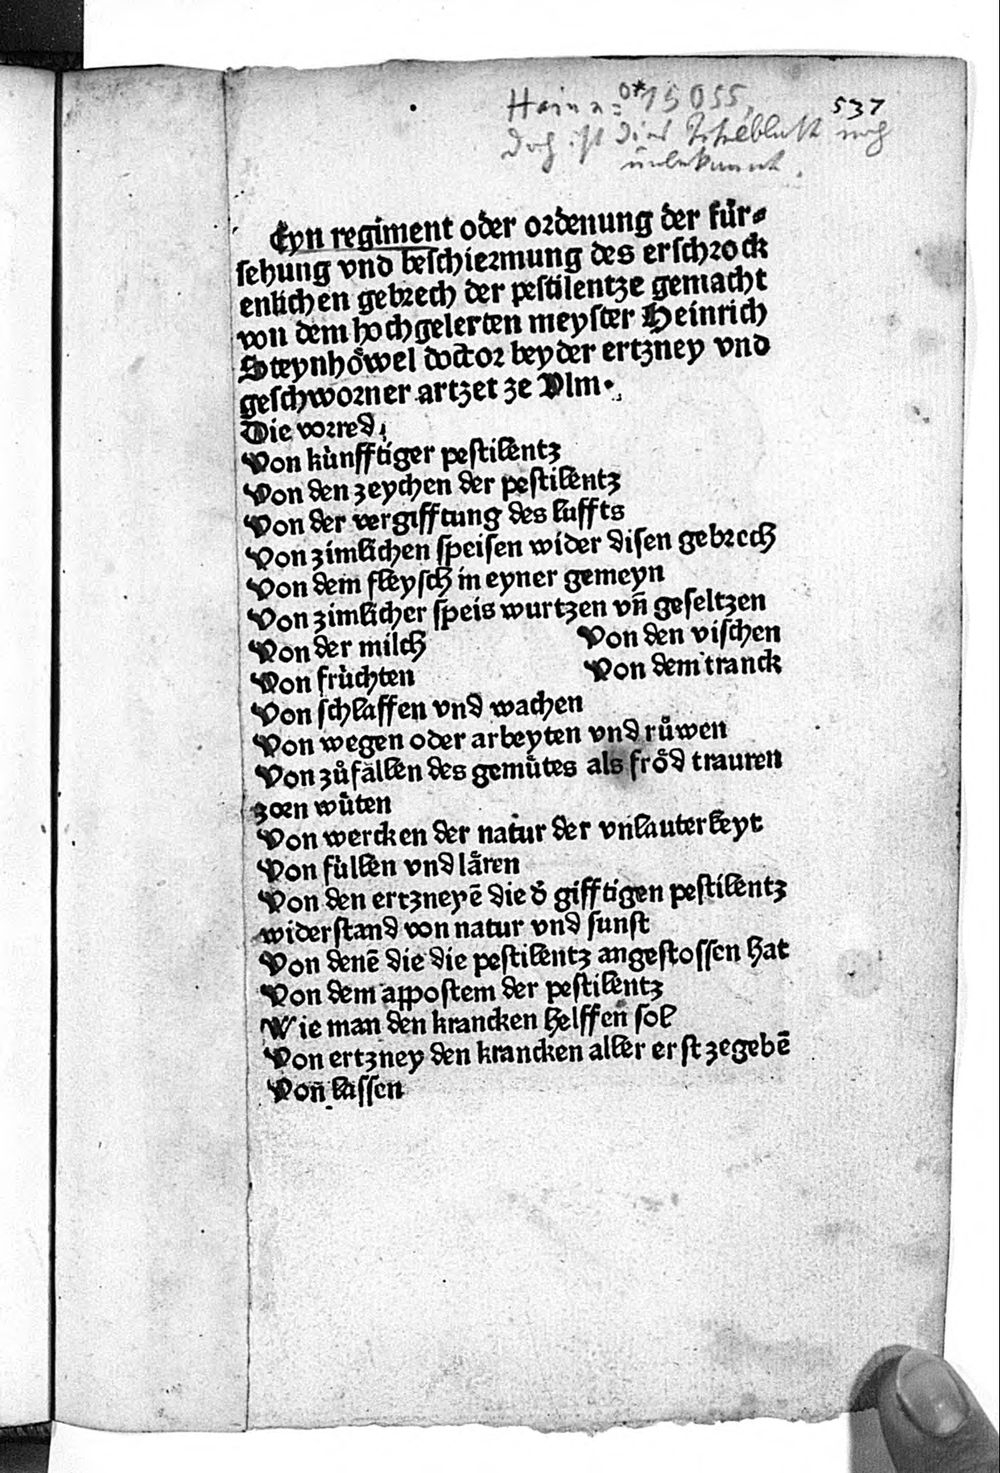 Hain n= 0*15055,
537
Doch ist dies Titelblatt noch
unbekannt.
Eyn regiment oder ordenung der für⸗
sehung vnd beschiermung des erschrock
enlichen gebrech der pestilentze gemacht
von dem hochgelerten meyster Heinrich
Steynhöwel doctor beyder ertzney vnd
geschworner artzet ze Vlm.
Die vorred
Von künfftiger pestilentz
Von den zeychen der pestilentz
Von der vergifftung des luffts
Von zimlichen speisen wider disen gebrech
Von dem fleysch in eyner gemeyn
Von zimlicher speis wurtzen vn̄ geseltzen
Von der milch Von den vischen
Von früchten Von dem tranck
Von schlaffen vnd wachen
Von wegen oder arbeyten vnd růwen
Von zůfällen des gemütes als fröd trauren
zorn wüten
Von wercken der natur der vnlauterkeyt
Von füllen vnd lären
Von den ertzneyē die d̄ gifftigen pestilentz
widerstand von natur vnd sunst
Von denē die die pestilentz angestossen hat
Von dem appostem der pestilentz
Wie man den krancken helffen sol
Von ertzney den krancken aller erst zegebē
Von lassen